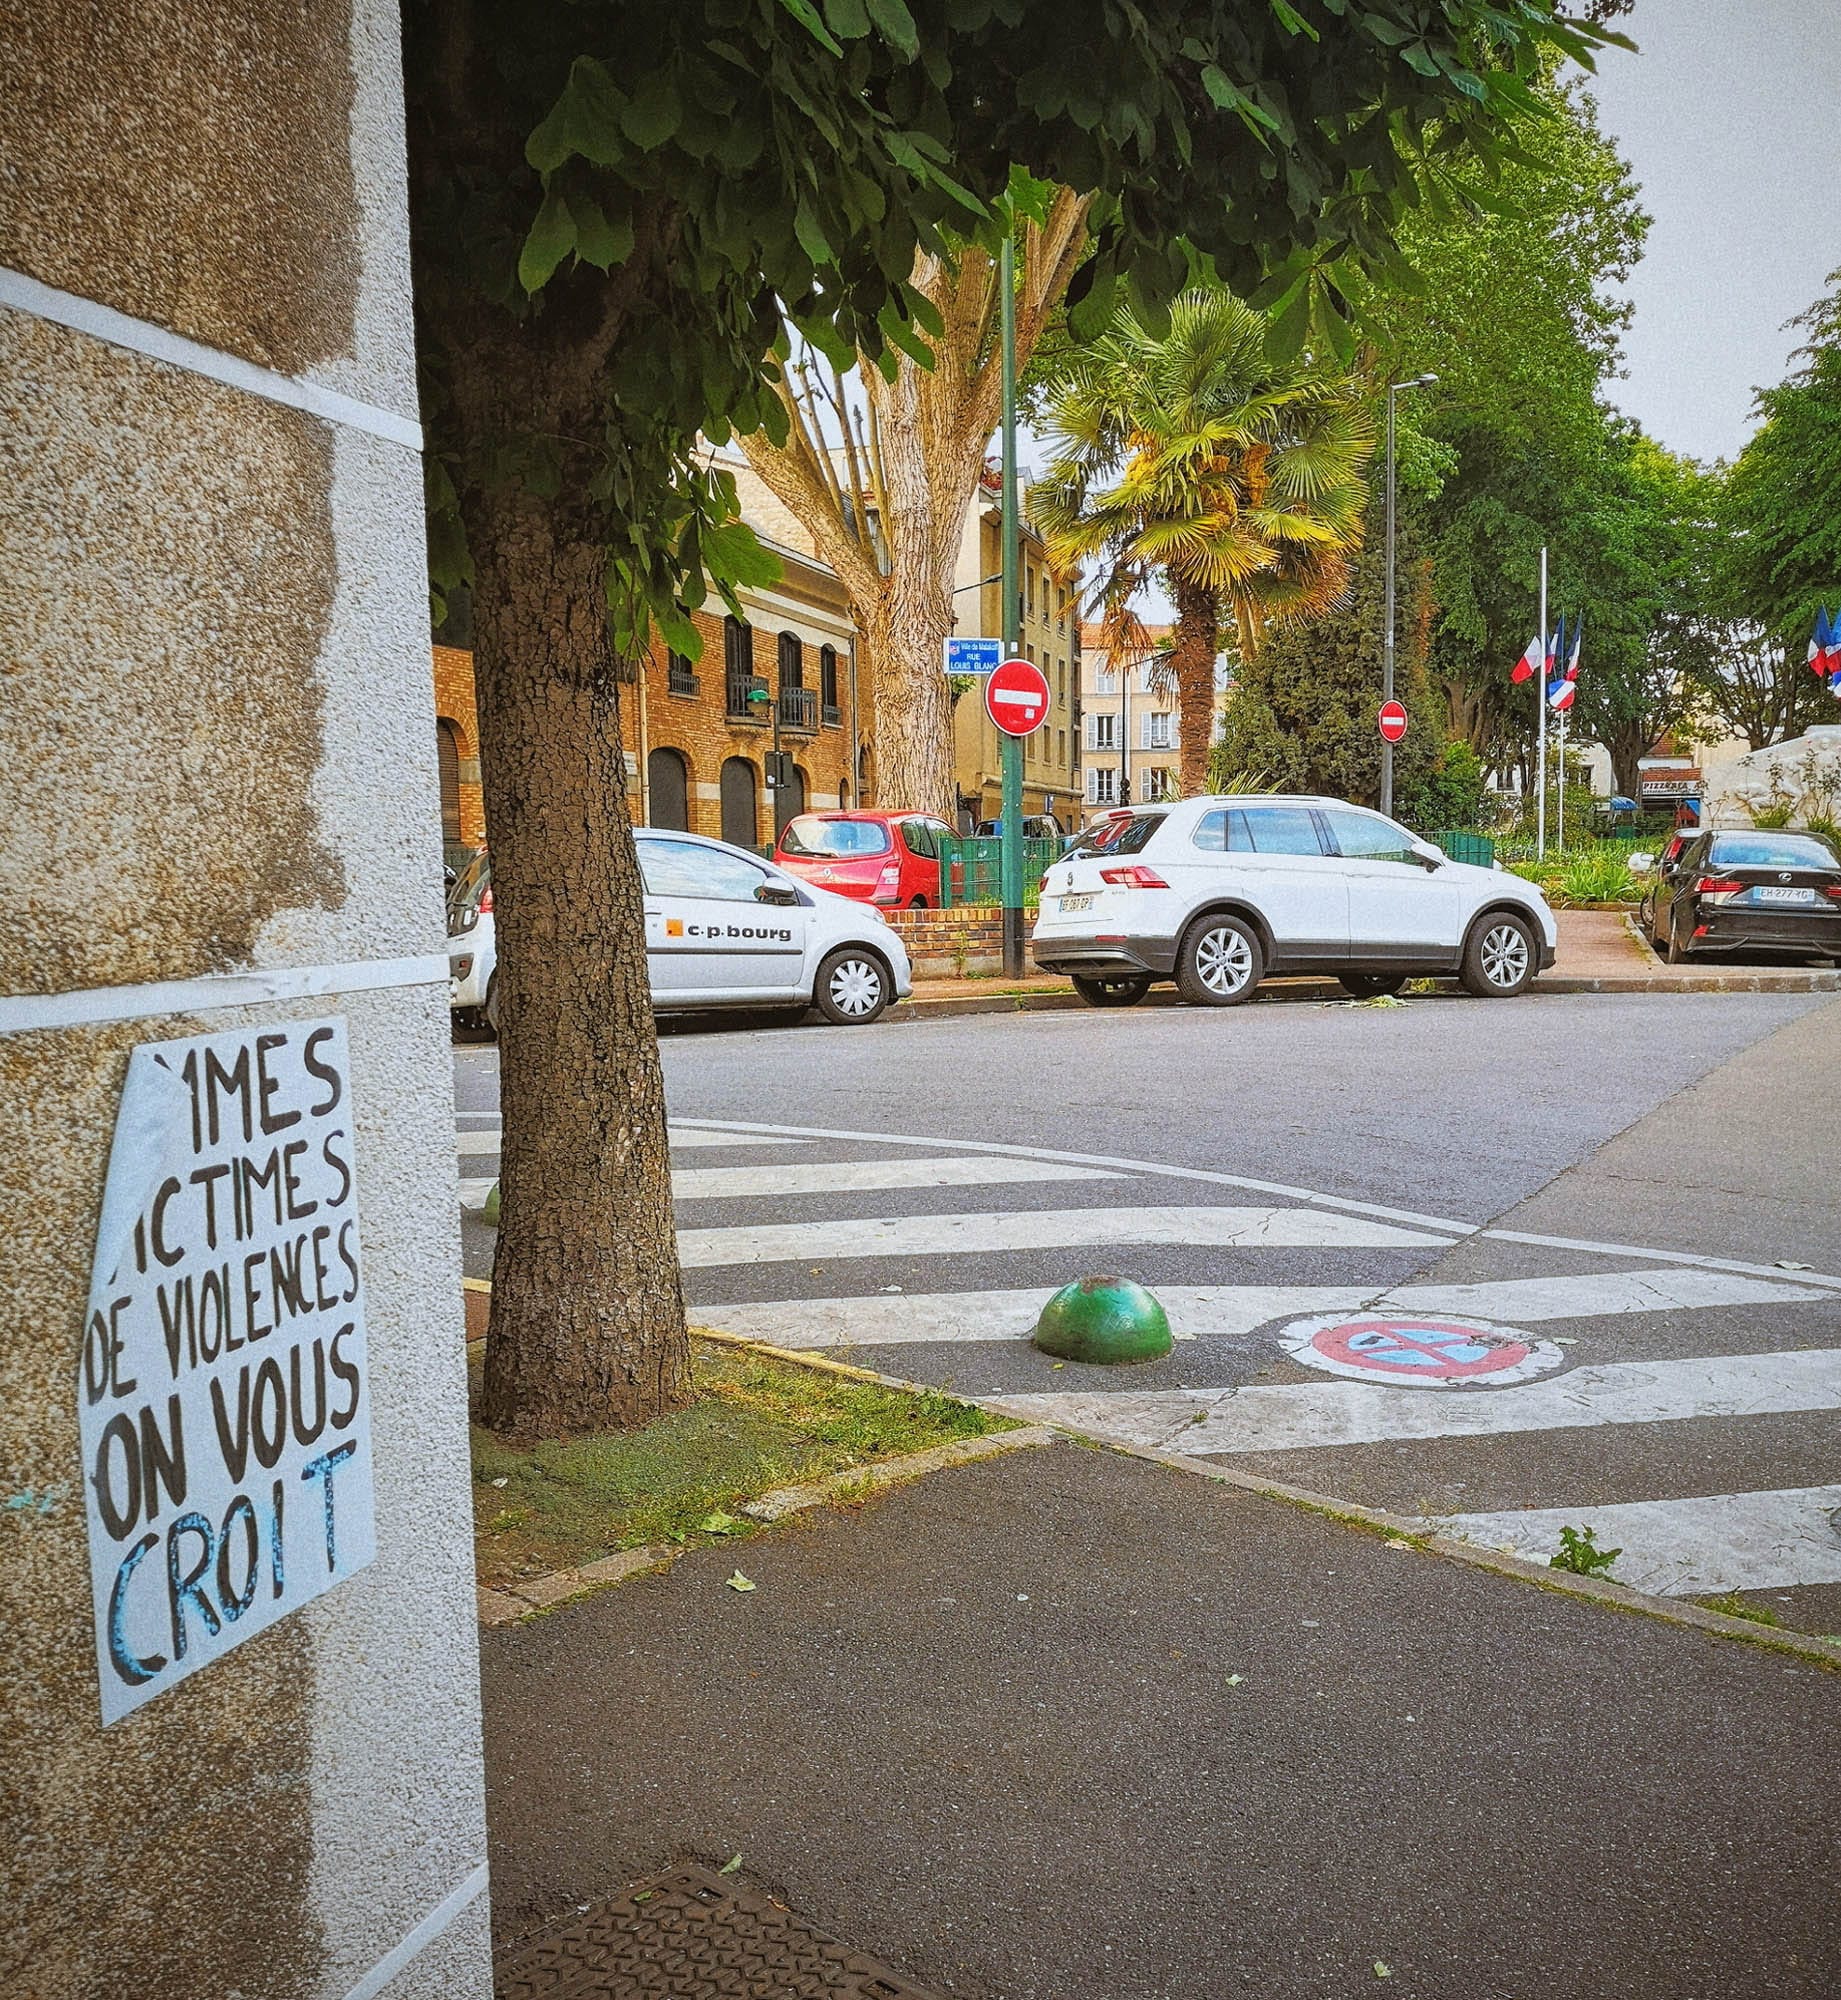 MMES
ICTIMES
DE VIOLENCES
ON VOUS
CROIT
Ville de Malakoff
RUE
LOUIS BLANC
c.p.bourg
PIZZERIA
EH-277-YG